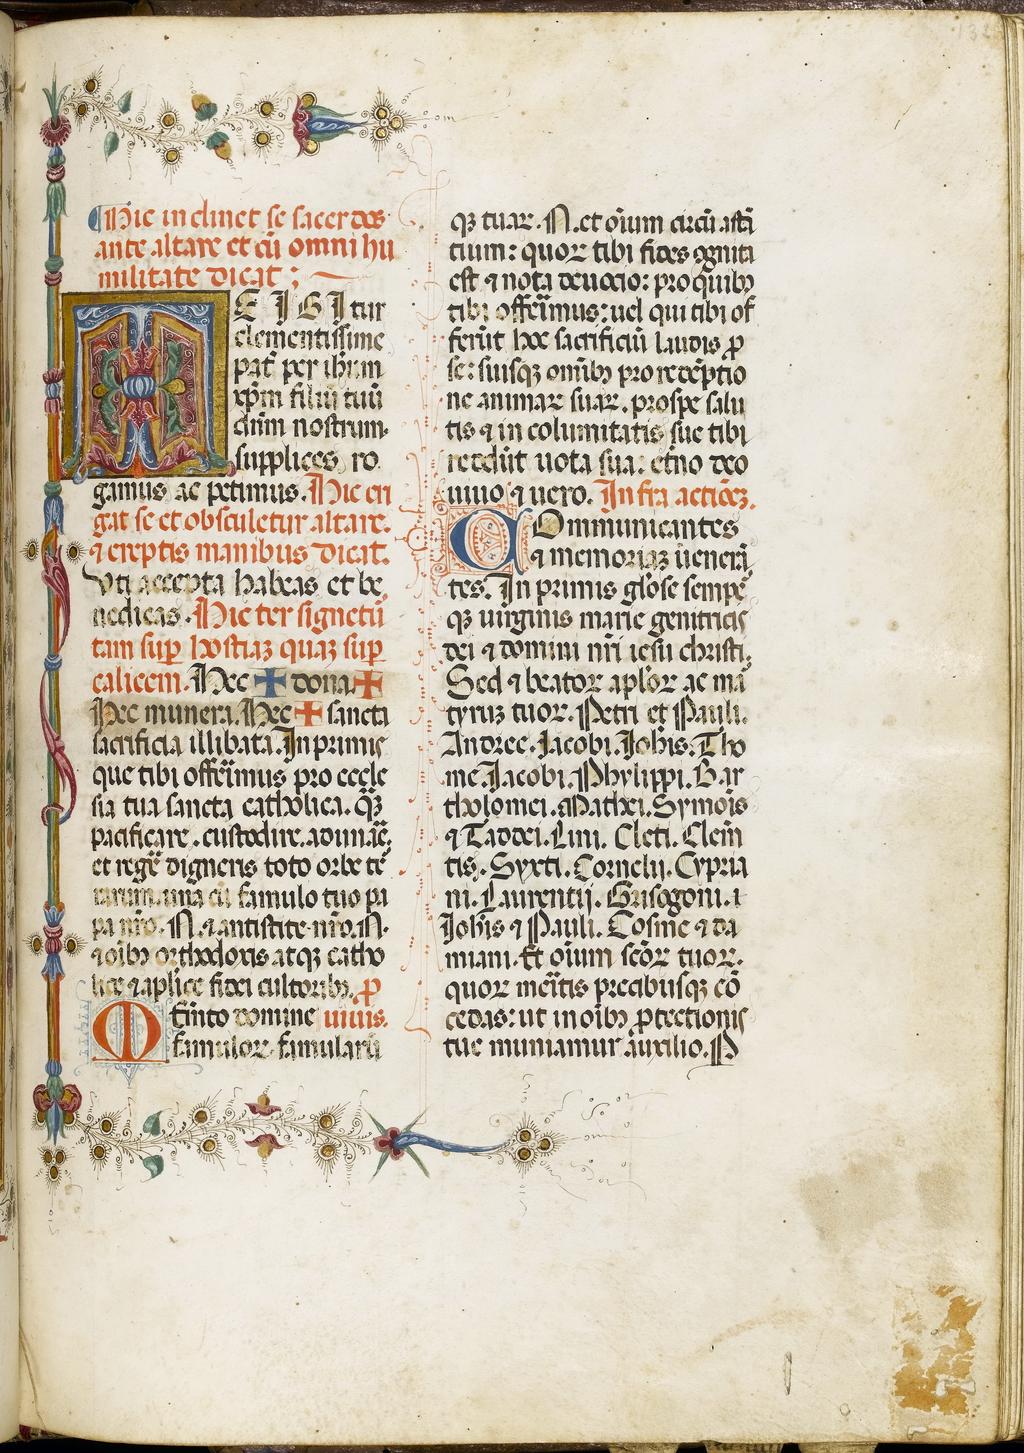 Hic inclinet se sacerdos
ante altare et cū omni hu
militate dicat:
TE IGItur
clementissime
pat̄ per ihm̄
xp̄m filiū tuū
dn̄m nostrum.
supplices ro
gamus ac petimus. Hic eri
gat se et obsculetur altare.
⁊ ereptis manibus dicat.
Vti accepta habeas et be
nedicas. Hic ter signet ū
tam sup̄ hostiaʒ quaʒ sup̄
calicem. Hec ✚ dona ✚
Hec munera. Hec ✚ sancta
sacrificia illibata. In primis
que tibi offerimus pro eccle
sia tua sancta catholica. q̄ʒ
pacificare. custodire. adunāē.
et reḡe digneris toto orbe tē
rarum. una cū famulo tuo pa
pa nr̄o. N. ⁊ antistite nr̄o. N.
⁊ oībʒ orthodoxis atqʒ catho
lice ⁊ aplice fidei cultoribʒ. ꝓ
Mem̄to domine uiuis.
famuloꝝ. famularū
qʒ tuaꝝ. N. et oīum circū astā
tium: quoꝝ tibi fides ꝯgnita
est ⁊ nota deuocio: pro quibʒ
tibi offerīmus: uel qui tibi of
ferūt hoc sacrificiū laudis ꝓ
se: suisqʒ omībʒ pro redēptio
ne animaꝝ suaꝝ. pro spe salu
tis ⁊ in columitatis sue tibi
reddūt uota sua: et̄no deo
uiuo ⁊ uero. Infra actiōeʒ.
COmmunicantes
⁊ memoriaʒ uenerā
tes. In primis gl̄ose semp̄e
qʒ uirginis marie genitricis
dei ⁊ domini nr̄i iesu christi.
Sed ⁊ beatoꝝ aploꝝ ac mā
tyruʒ tuoꝝ. Petri et Pauli.
Andree. Jacobi. Joh̄is. Tho
me. Jacobi. Phylippi. Bar
tholomei. Mathei. Symoīs
⁊ Taddei. Lini. Cleti. Clem̄
tis. Syxti. Cornelij. Cypria
ni. Laurentij. Grisogoni. ⁊
Joh̄is ⁊ Pauli. Cosme ⁊ da
miani. Et oīum sc̄oꝝ tuoꝝ.
quoꝝ mēītis precibusqʒ cō
cedas: ut in oībʒ ꝓtectionis
tue muniamur auxilio. P